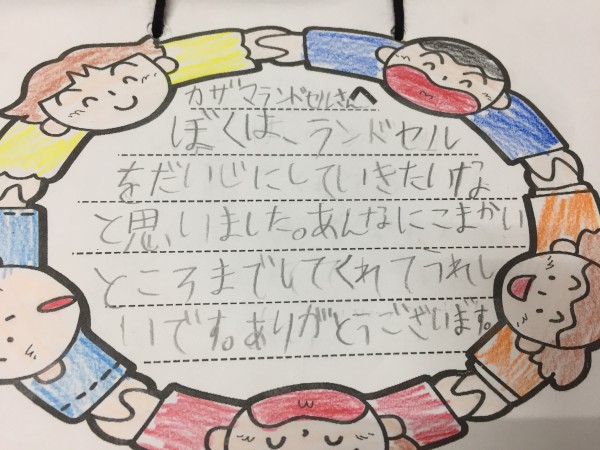 カザマランドセルさんへ
ぼくは、ランドセル
をだいじにしていきたいな
と思いました。あんなにこまかい
ところまでしてくれてうれし
いです。ありがとうございます。